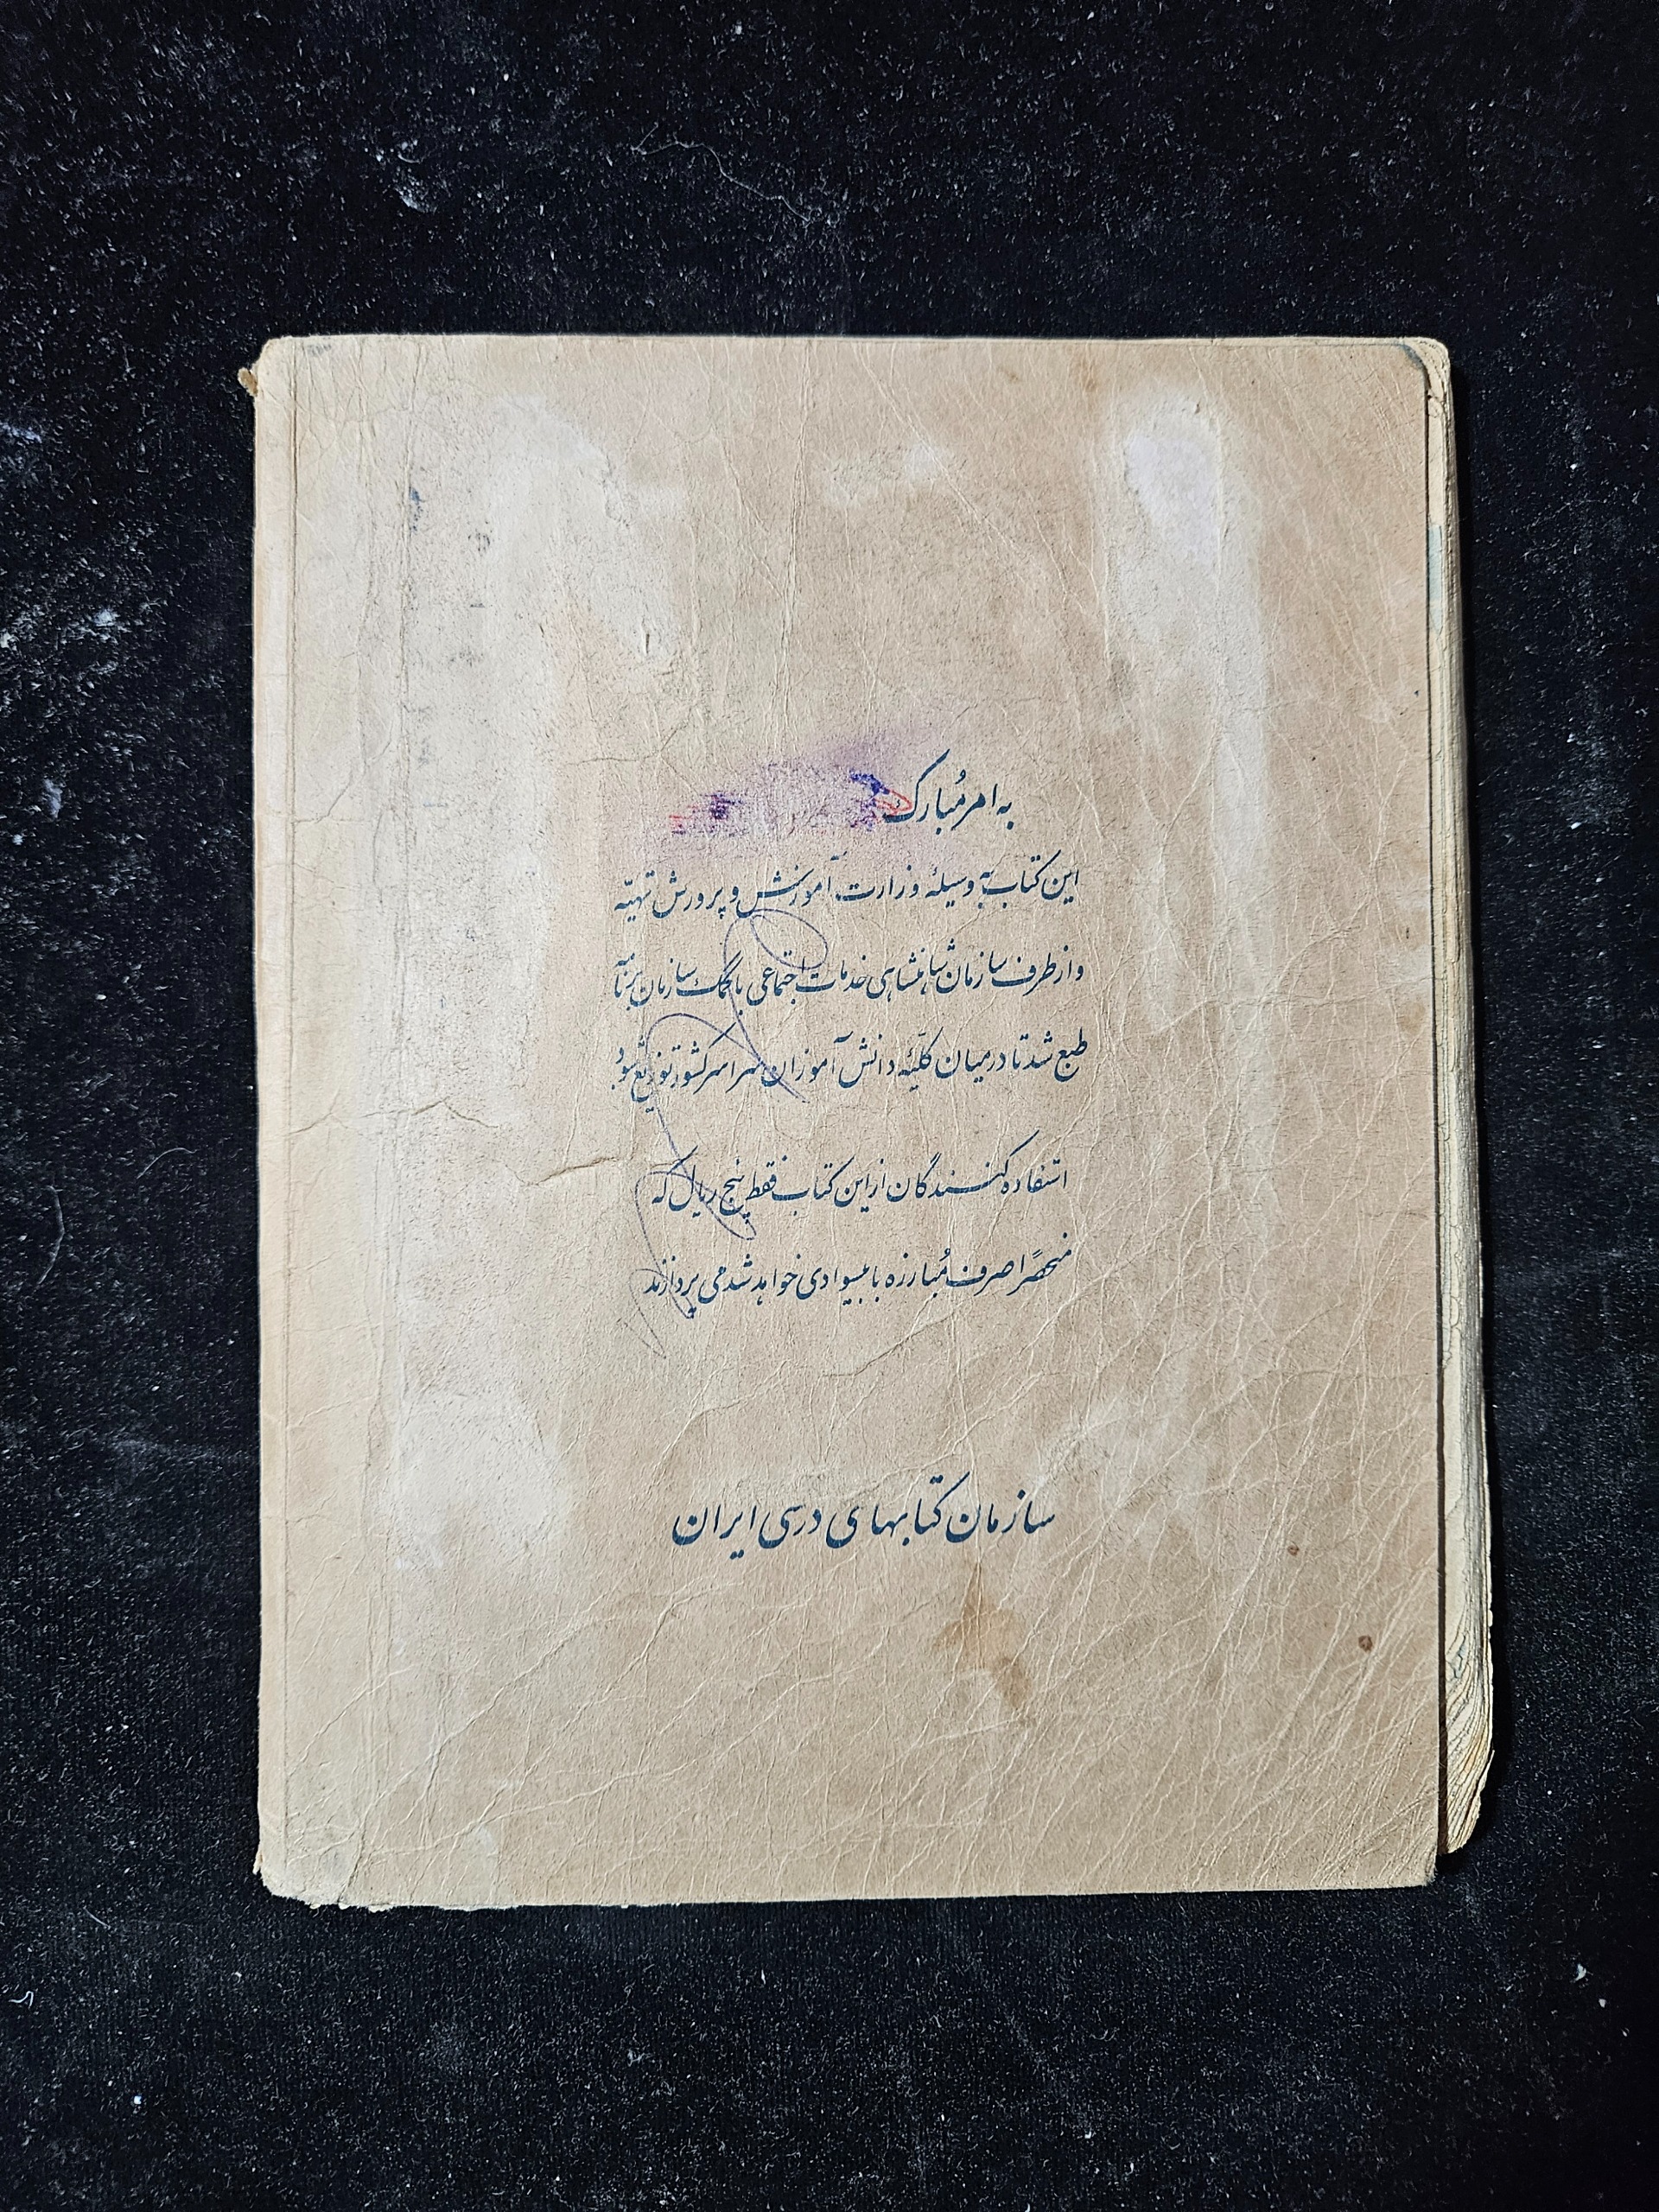 به امر مُبارک
این کتاب به وسیلهٔ وزارت آموزش و پرورش تهیّه
و از طرف سازمان شاهنشاهی خدمات اجتماعی با کمک سازمان برنامه
طبع شد تا در میان کلّیهٔ دانش آموزان سراسر کشور توزیع شود
استفاده کنندگان از این کتاب فقط پنج ریال که
منحصراً صرف مُبارزه با بیسوادی خواهد شد می پردازند
سازمان کتابهای درسی ایران